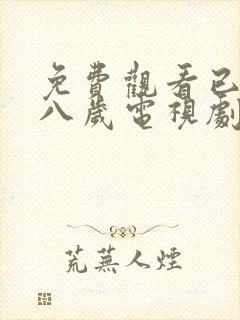 免費觀看已
八歲電視劇
荒蕪人煙